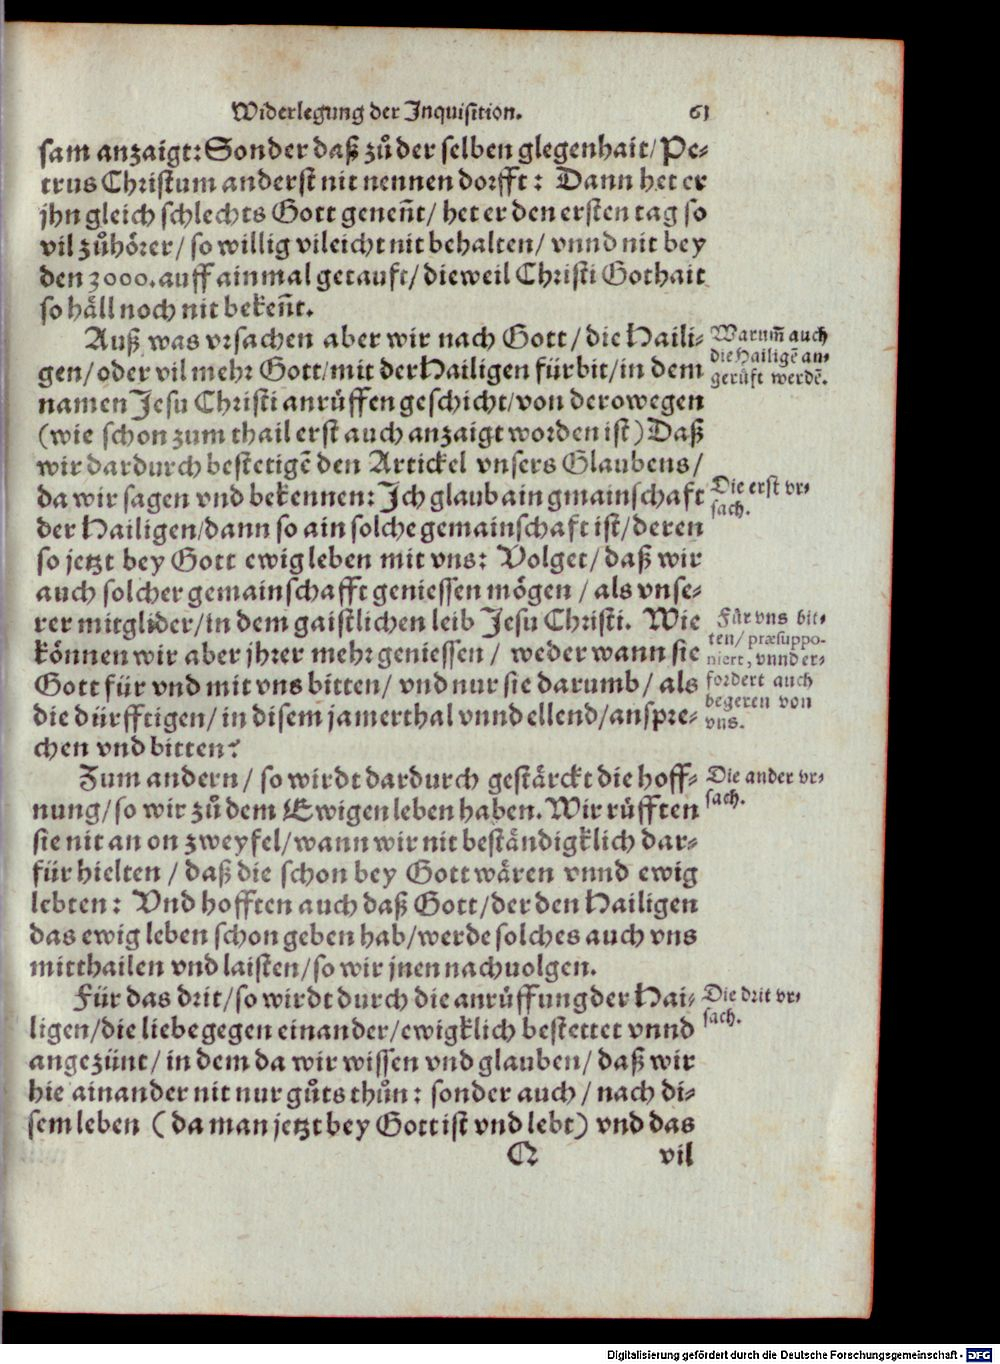 Widerlegung der Inquisition. 61
sam anzaigt: Sonder daß zů der selben glegenhait/ Pe-
trus Christum anderst nit nennen dorfft: Dann het er
jhn gleich schlechts Gott genen̄t/ het er den ersten tag so
vil zůhörer/ so willig vileicht nit behalten/ vnnd nit bey
den 3000. auff ainmal getauft/ dieweil Christi Gothait
so häll noch nit beken̄t.
Auß was vrsachen aber wir nach Gott/ die Haili-
gen/ oder vil mehr Gott/ mit der Hailigen fürbit/ in dem
namen Jesu Christi anrůffen geschicht/ von derowegen
(wie schon zum thail erst auch anzaigt worden ist) Daß
wir dardurch bestetigē den Artickel vnsers Glaubens/
da wir sagen vnd bekennen: Ich glaub ain gmainschaft
der Hailigen/ dann so ain solche gemainschaft ist/ deren
so jetzt bey Gott ewig leben mit vns: Volget/ daß wir
auch solcher gemainschafft geniessen mögen/ als vnse-
rer mitglider/ in dem gaistlichen leib Jesu Christi. Wie
können wir aber jhrer mehr geniessen/ weder wann sie
Gott für vnd mit vns bitten/ vnd nur sie darumb/ als
die dürfftigen/ in disem jamerthal vnnd ellend/ anspre-
chen vnd bitten?
Zum andern/ so wirdt dardurch gestärckt die hoff-
nung/ so wir zů dem Ewigen leben haben. Wir růfften
sie nit an on zweyfel/ wann wir nit beständigklich dar-
für hielten/ daß die schon bey Gott wären vnnd ewig
lebten: Vnd hofften auch daß Gott/ der den Hailigen
das ewig leben schon geben hab/ werde solches auch vns
mitthailen vnd laisten/ so wir jnen nachuolgen.
Für das drit/ so wirdt durch die anrůffung der Hai-
ligen/ die liebe gegen einander/ ewigklich bestettet vnnd
angezünt/ in dem da wir wissen vnd glauben/ daß wir
hie ainander nit nur gůts thůn: sonder auch/ nach di-
sem leben (da man jetzt bey Gott ist vnd lebt) vnd das
Q vil
Warum̄ auch
die Hailigē an-
gerůft werdē.
Die erst vr-
sach.
Für vns bit-
ten/ præsuppo-
niert, vnnd er-
fordert auch
begeren von
vns.
Die ander vr-
sach.
Die drit vr-
sach.
Digitalisierung gefördert durch die Deutsche Forschungsgemeinschaft - DFG